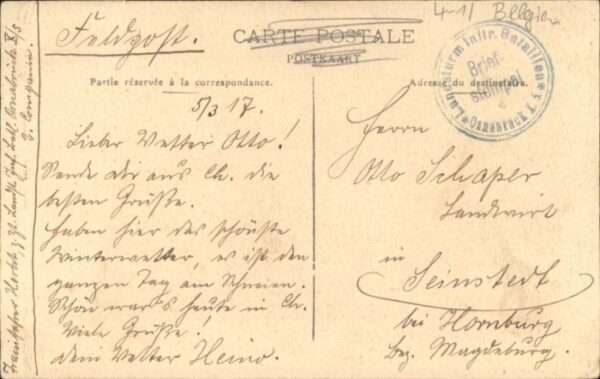 4-1/ Belgien
Feldpost.
CARTE POSTALE
POSTKAART
Partie réservée à la correspondance.
Adresse du destinataire.
Landsturm Inftr. Bataillon
Brief-
stempel
Osnabrück
5/3 17.
Lieber Vetter Otto!
Sende dir aus Ch. die
besten Grüße.
Haben hier das schönste
Winterwetter, es ist den
ganzen Tag am Schneien.
Schön war's heute in Ch.
Viele Grüße!
Dein Vetter Heino.
Herrn
Otto Schaper
Landwirt
in
Seinstedt
bei Hornburg
Bez. Magdeburg.
Landst. Inf. Batl. Osnabrück
3. Companie.